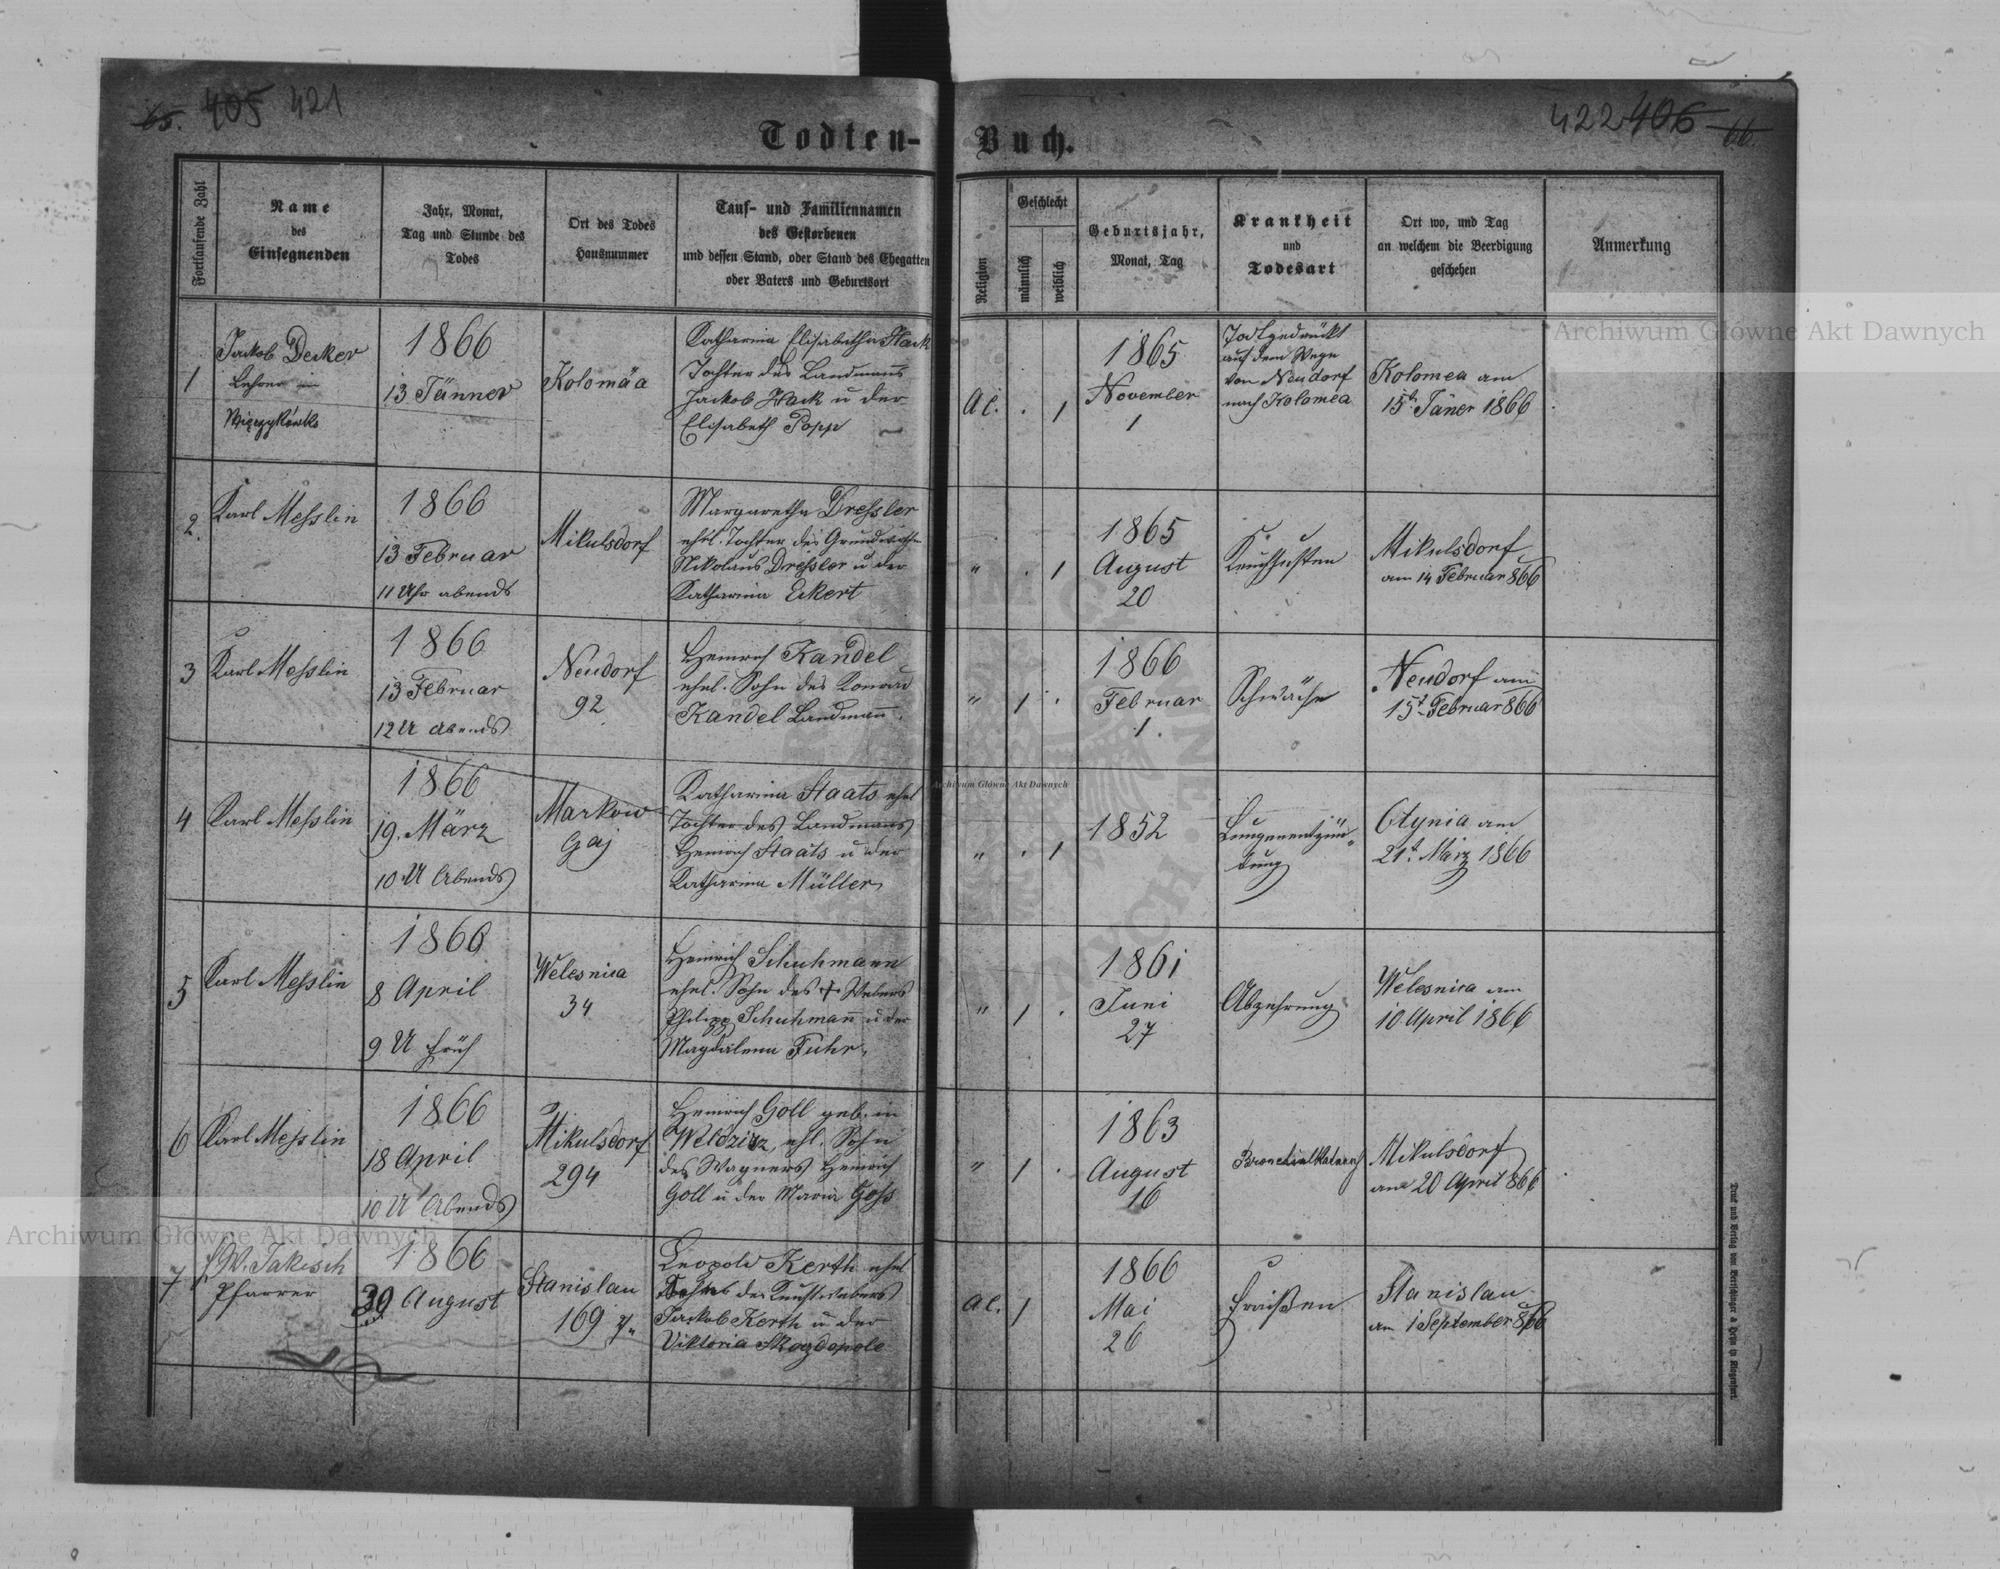 65. 405 421
422 406 66.
Todten-Buch.
Fortlaufende Zahl
Name
des
Einsegnenden
Jahr, Monat,
Tag und Stunde des
Todes
Ort des Todes
Hausnummer
Tauf- und Familiennamen
des Gestorbenen
und dessen Stand, oder Stand des Ehegatten
oder Vaters und Geburtsort
Religion
Geschlecht
männlich
weiblich
Geburtsjahr,
Monat, Tag
Krankheit
und
Todesart
Ort wo, und Tag
an welchem die Beerdigung
geschehen
Anmerkung
1
Jackob Decker
Lehrer in
1866
13 Jänner
Kolomäa
Katharina Elisabetha Hack
Tochter des Landmanns
Jackob Hack u der
Elisabeth Popp
AC. . 1
1865
November
1
Todtgedrückt
auf dem Wege
von Neudorf
nach Kolomea
Kolomea am
15t Jäner 1866
2.
Karl Messlin
1866
13 Februar
11 Uhr abends
Mikulsdorf
Margaretha Dressler
ehel. Tochter des Grundwirths
Nikolaus Dressler u der
Katharina Eckert
" . 1
1865
August
20
Keuchhusten
Mikulsdorf
am 14 Februar 866
3
Karl Messlin
1866
13 Februar
12 U abends
Neudorf
92
Heinrich Kandel
ehel. Sohn des Konrad
Kandel Landmann.
" 1 .
1866
Februar
1.
Schwäche
Neudorf am
15t Februar 866
4
Karl Messlin
1866
19. März
10 U Abends
Markow
Gaj
Katharina Staats ehel
Tochter des Landmanns
Heinrich Staats u der
Katharina Müller
" . 1
1852
Lungenentzün-
dung
Otynia am
21t März 1866
5
Karl Messlin
1866
8 April
9 U früh
Welesnica
34
Heinrich Schuhmann
ehel. Sohn des + Webers
Philipp Schuhmann u der
Magdalena Fuhr.
" 1 .
1861
Juni
27
Abzehrung
Welesnica am
10 April 1866
6
Karl Messlin
1866
18 April
10 U Abends
Mikulsdorf
294
Heinrich Goll geb. in
Weldzirz, ehl. Sohn
des Wagners Heinrich
Goll u der Maria Goss
" 1 .
1863
August
16
Bronchialkatarrh
Mikulsdorf
am 20 April 866
7
Pfarrer
1866
30 August
Stanislau
169
Leopold Kerth ehel
Sohn des Kunstwebers
Jackob Kerth u der
Viktoria
AC. 1
1866
Mai
26
Fraißen
Stanislau
am 1 September 866
Archiwum Główne Akt Dawnych
Archiwum Główne Akt Dawnych
Archiwum Główne Akt Dawnych